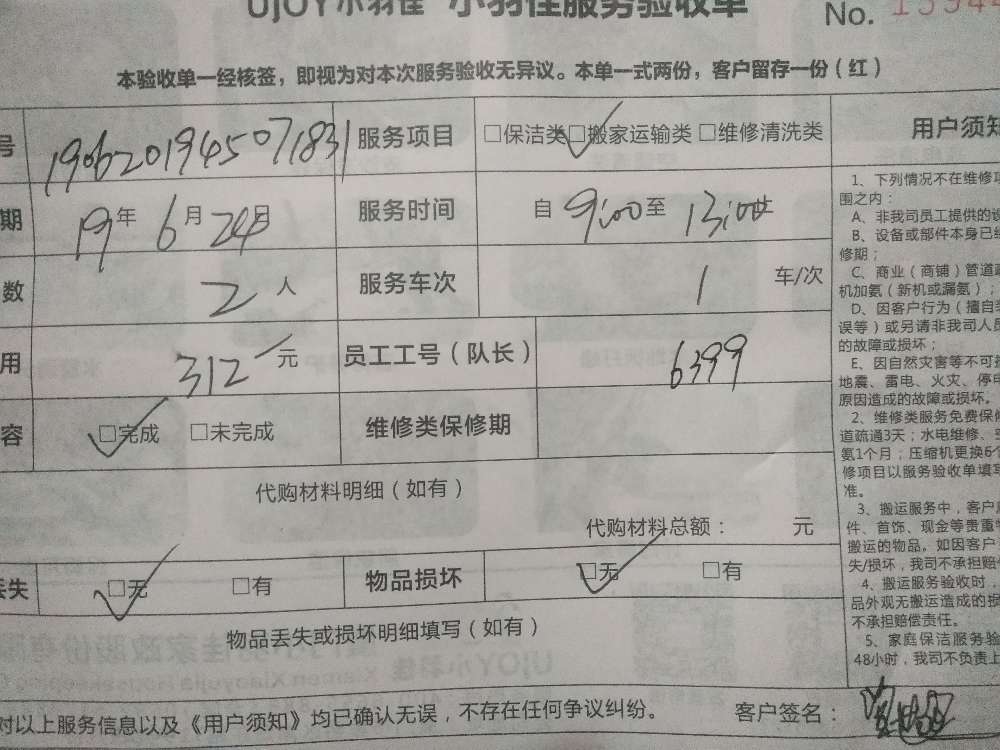 UJOY小羽佳 小羽佳服务验收单
No. 15944
本验收单一经核签，即视为对本次服务验收无异议。本单一式两份，客户留存一份（红）
号 1906201945071831 服务项目 □保洁类 □搬家运输类 □维修清洗类
期 19年 6月 24日 服务时间 自 9:00 至 13:00 止
数 2 人 服务车次 1 车/次
用 312 元 员工工号（队长） 6399
容 □完成 □未完成 维修类保修期
代购材料明细（如有）
代购材料总额： 元
丢失 □无 □有 物品损坏 □无 □有
物品丢失或损坏明细填写（如有）
对以上服务信息以及《用户须知》均已确认无误，不存在任何争议纠纷。 客户签名：
用户须知
1、下列情况不在维修项
围之内：
A、非我司员工提供的设
B、设备或部件本身已经
修期；
C、商业（商铺）管道疏
机加氨（新机或漏氨）；
D、因客户行为（擅自
误等）或另请非我司人员
的故障或损坏；
E、因自然灾害等不可抗
地震、雷电、火灾、停电
原因造成的故障或损坏。
2、维修类服务免费保修
道疏通3天；水电维修、
氨1个月；压缩机更换6个
修项目以服务验收单填写
准。
3、搬运服务中，客户
件、首饰、现金等贵重
搬运的物品。如因客户
失/损坏，我司不承担赔偿
4、搬运服务验收时，
品外观无搬运造成的损
不承担赔偿责任。
5、家庭保洁服务验
48小时，我司不负责上